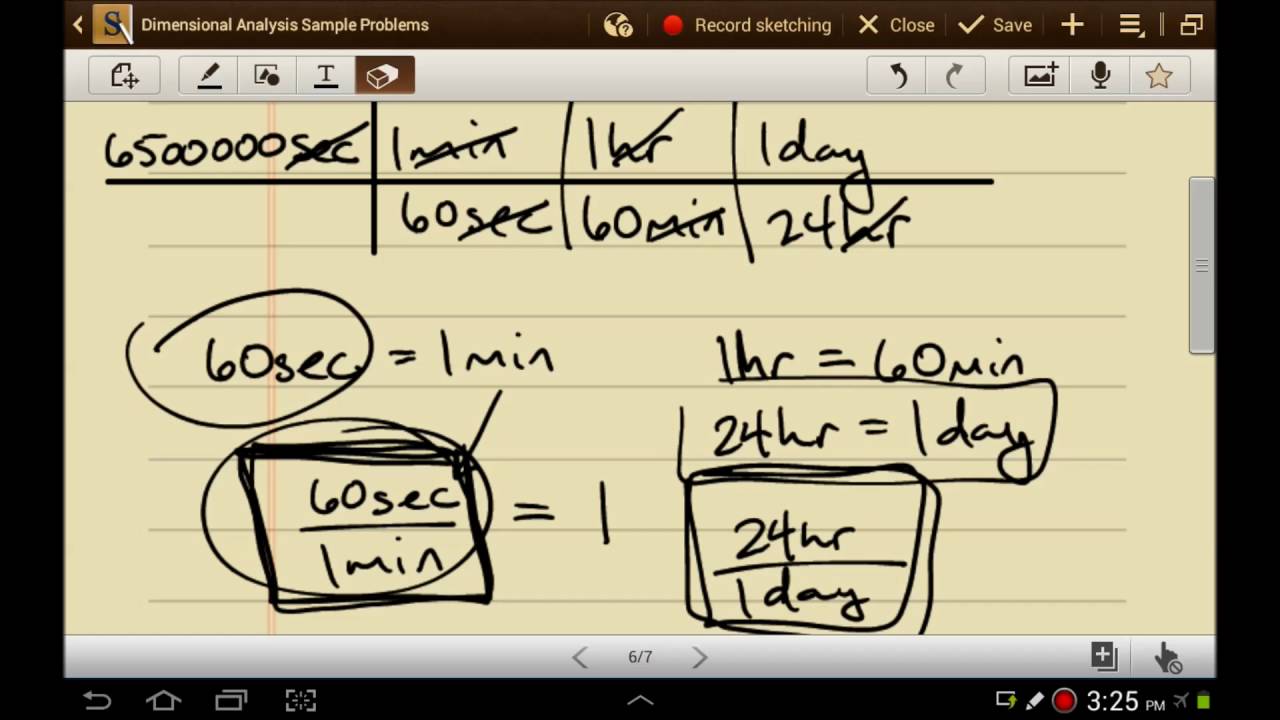 S Dimensional Analysis Sample Problems Record sketching Close Save
T
6500000sec 1min 1hr 1day
60sec 60min 24hr
60sec = 1min
1hr = 60min
24hr = 1day
60sec
1min
= 1
24hr
1day
6/7
3:25 PM